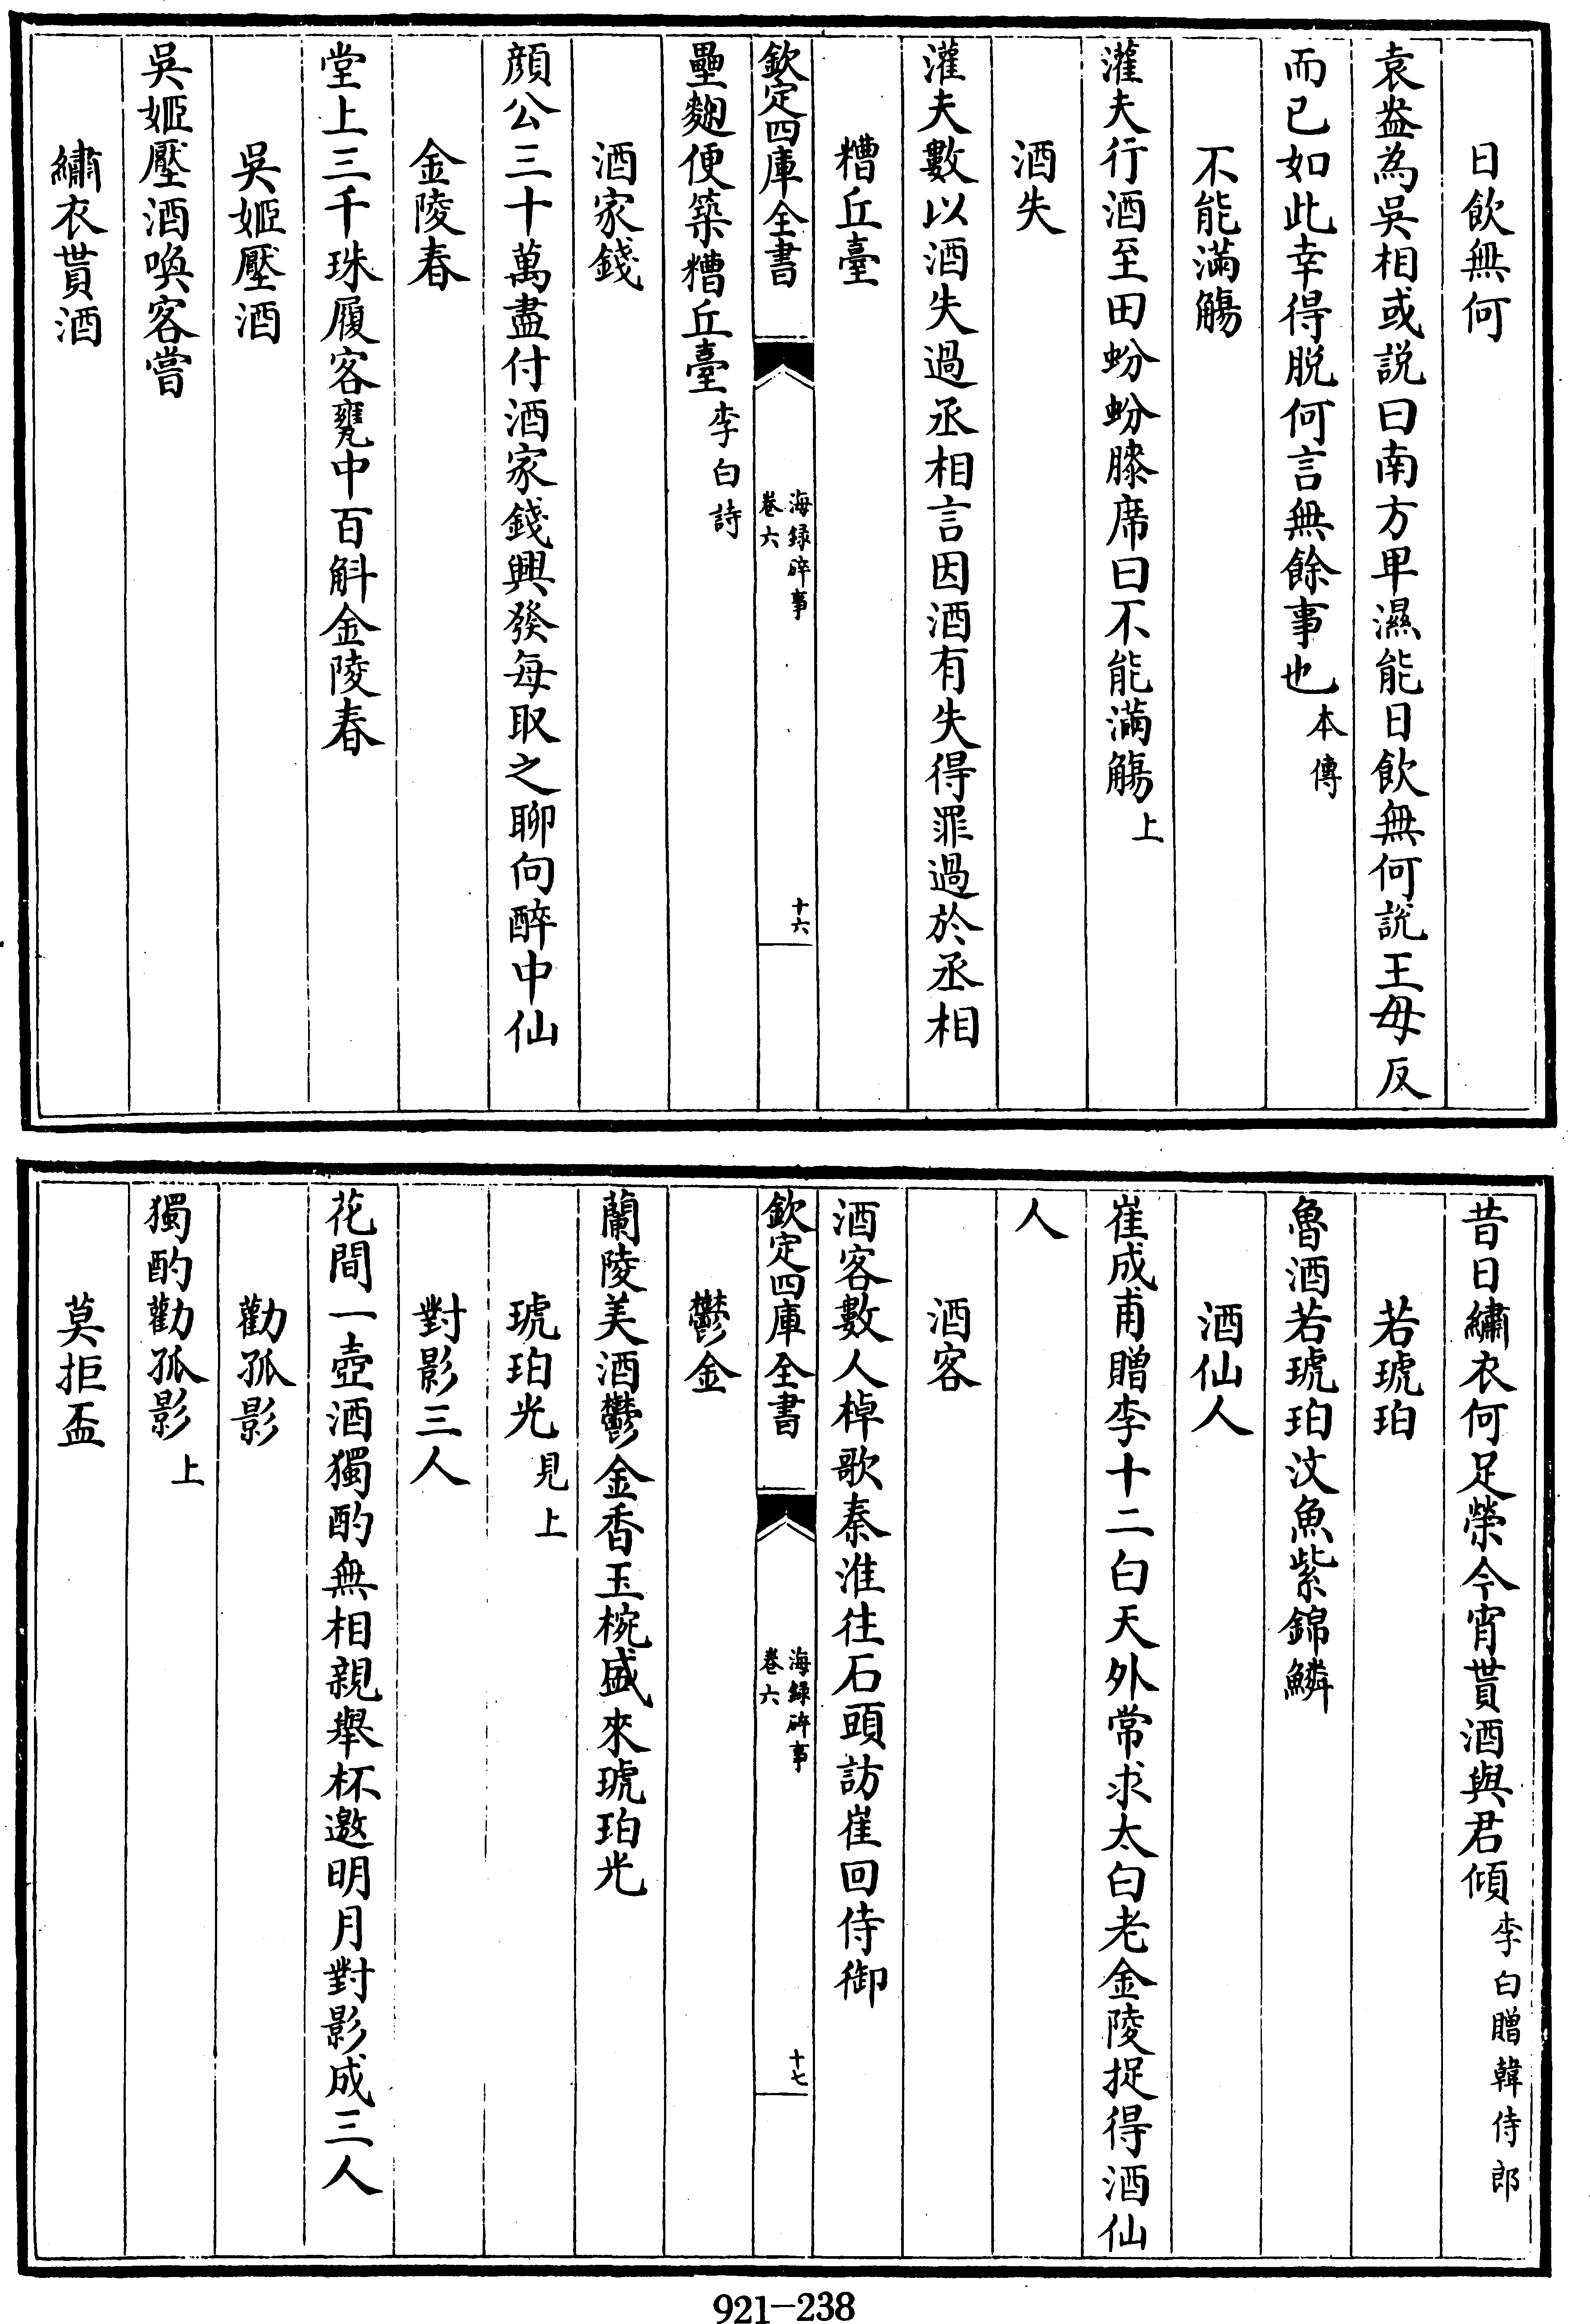 日飲無何
袁盎為吳相或説曰南方卑濕能日飲無何説王毋反
而已如此幸得脱何言無餘事也本傳
不能滿觴
灌夫行酒至田蚡蚡膝席曰不能滿觴上
酒失
灌夫數以酒失過丞相言因酒有失得罪過於丞相
糟丘臺
欽定四庫全書
海録碎事
卷六
十六
壘麴便築糟丘臺李白詩
酒家錢
顔公三十萬盡付酒家錢興發每取之聊向醉中仙
金陵春
堂上三千珠履客甕中百斛金陵春
吳姬壓酒
吳姬壓酒喚客嘗
繡衣貰酒
昔日繡衣何足榮今宵貰酒與君傾李白贈韓侍郎
若琥珀
魯酒若琥珀汶魚紫錦鱗
酒仙人
崔成甫贈李十二白天外常求太白老金陵捉得酒仙
人
酒客
酒客數人棹歌秦淮往石頭訪崔回侍御
欽定四庫全書
海録碎事
卷六
十七
鬱金
蘭陵美酒鬱金香玉椀盛來琥珀光
琥珀光見上
對影三人
花間一壺酒獨酌無相親舉杯邀明月對影成三人
勸孤影
獨酌勸孤影上
莫拒盃
921-238